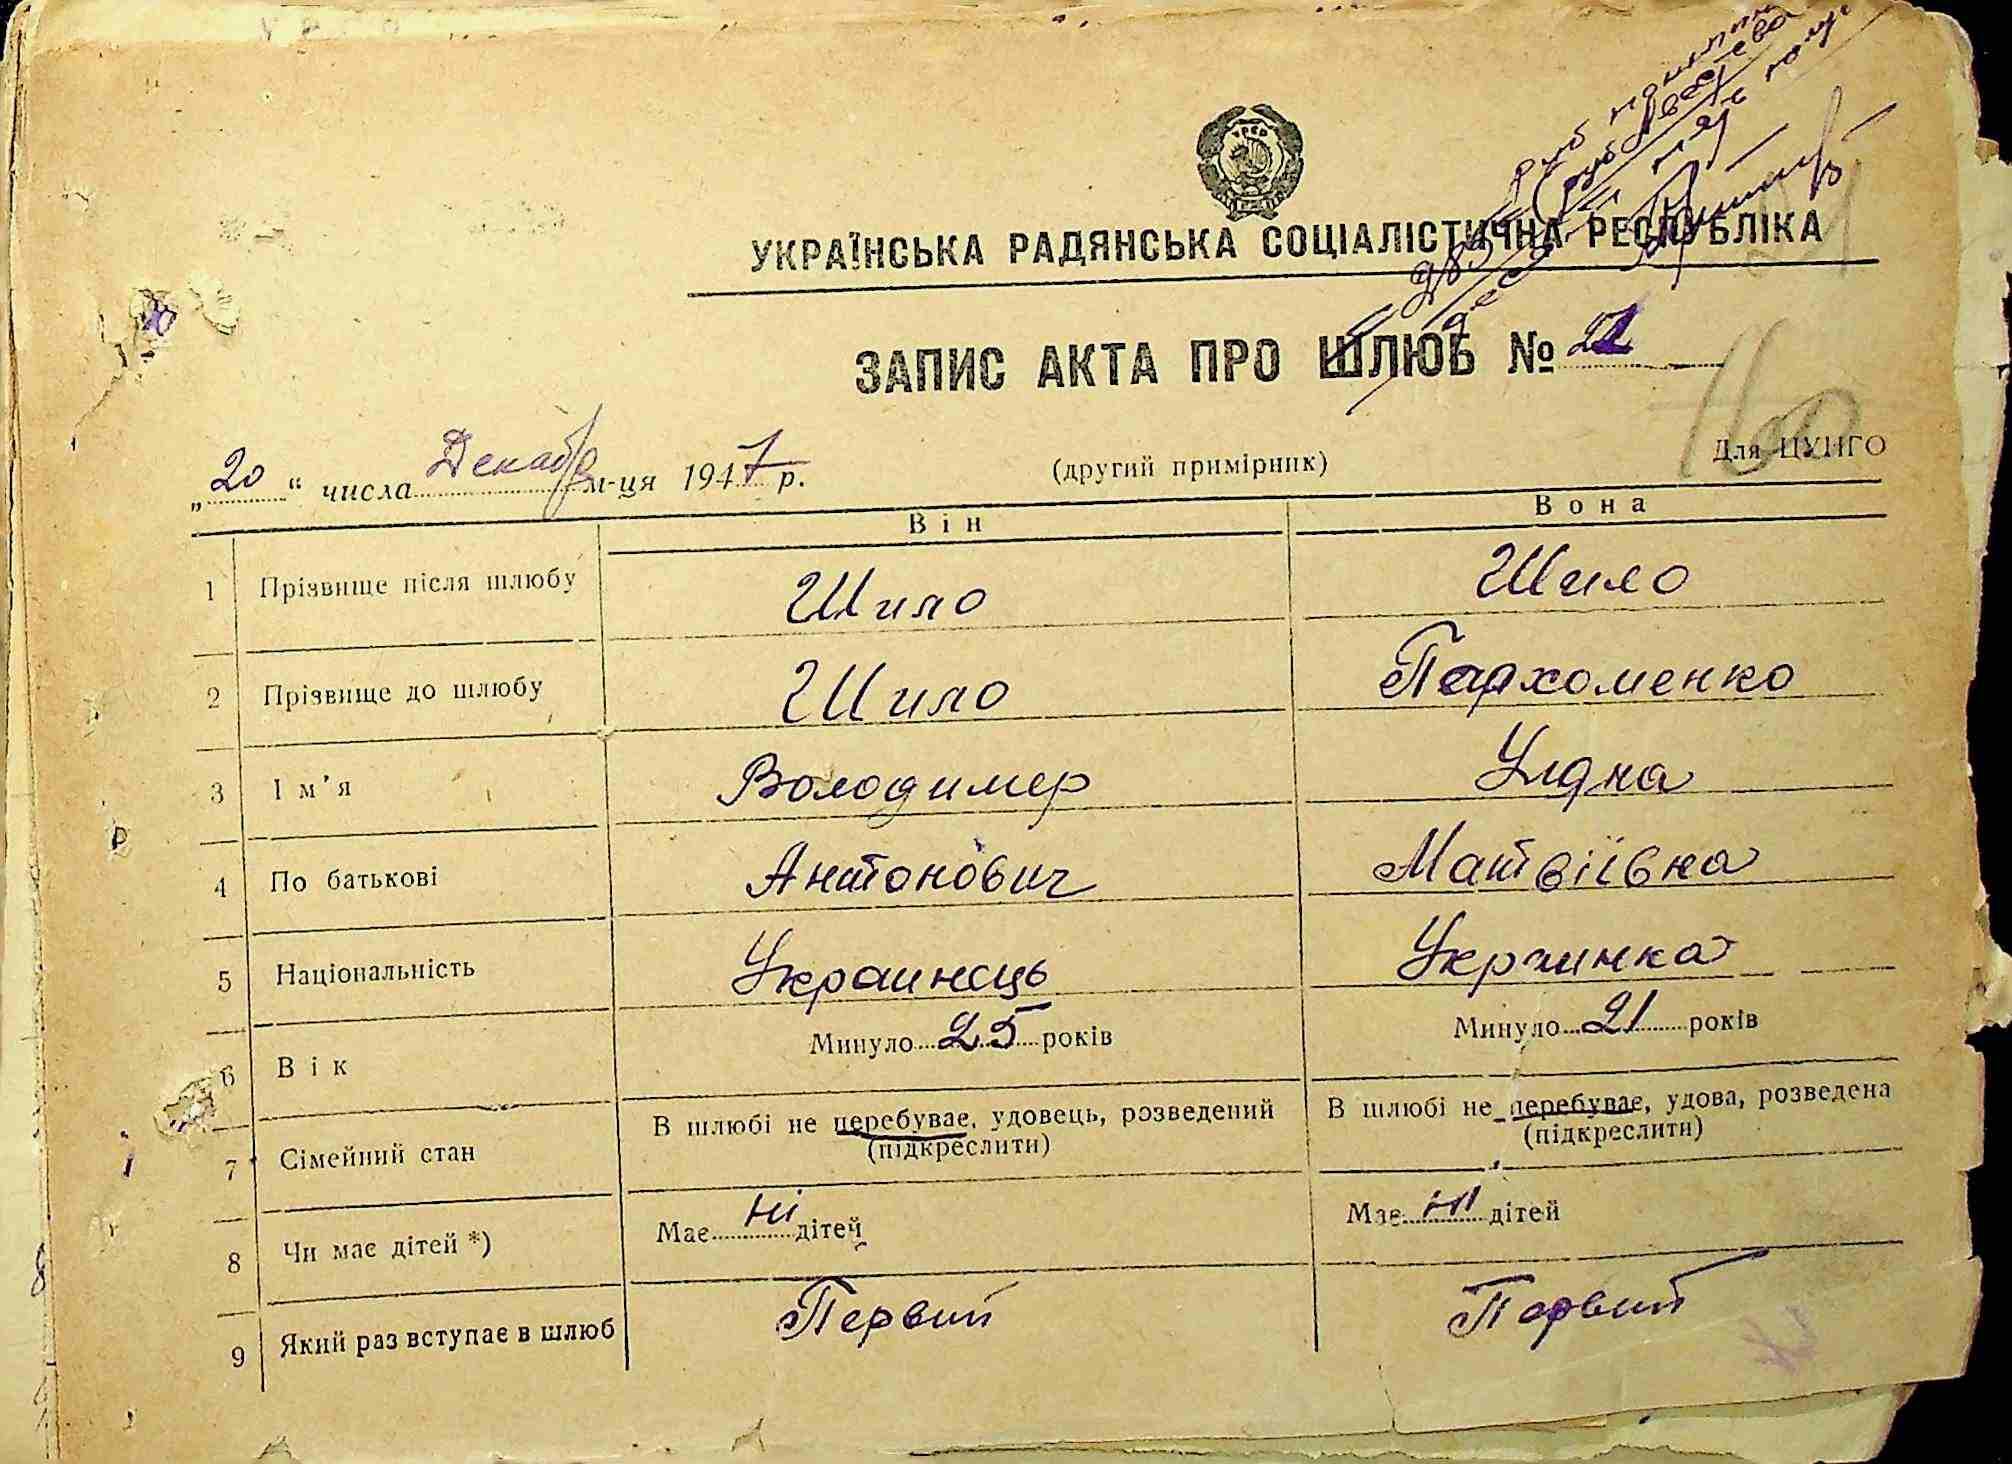 УРСР
УКРАЇНСЬКА РАДЯНСЬКА СОЦІАЛІСТИЧНА РЕСПУБЛІКА
ЗАПИС АКТА ПРО ШЛЮБ № 21
„20“ числа Декабр м-ця 1947 р. (другий примірник) Для ЦУНГО
160
Він Вона
1 Прізвище після шлюбу Шило Шило
2 Прізвище до шлюбу Шило Пархоменко
3 Ім'я Володимер Уляна
4 По батькові Антонович Матвіївна
5 Національність Украинець Украинка
6 Вік Минуло 25 років Минуло 21 років
7 Сімейний стан В шлюбі не перебуває, удовець, розведений В шлюбі не перебуває, удова, розведена
(підкреслити) (підкреслити)
8 Чи має дітей *) Має ні дітей Має ні дітей
9 Який раз вступає в шлюб Первий Первий